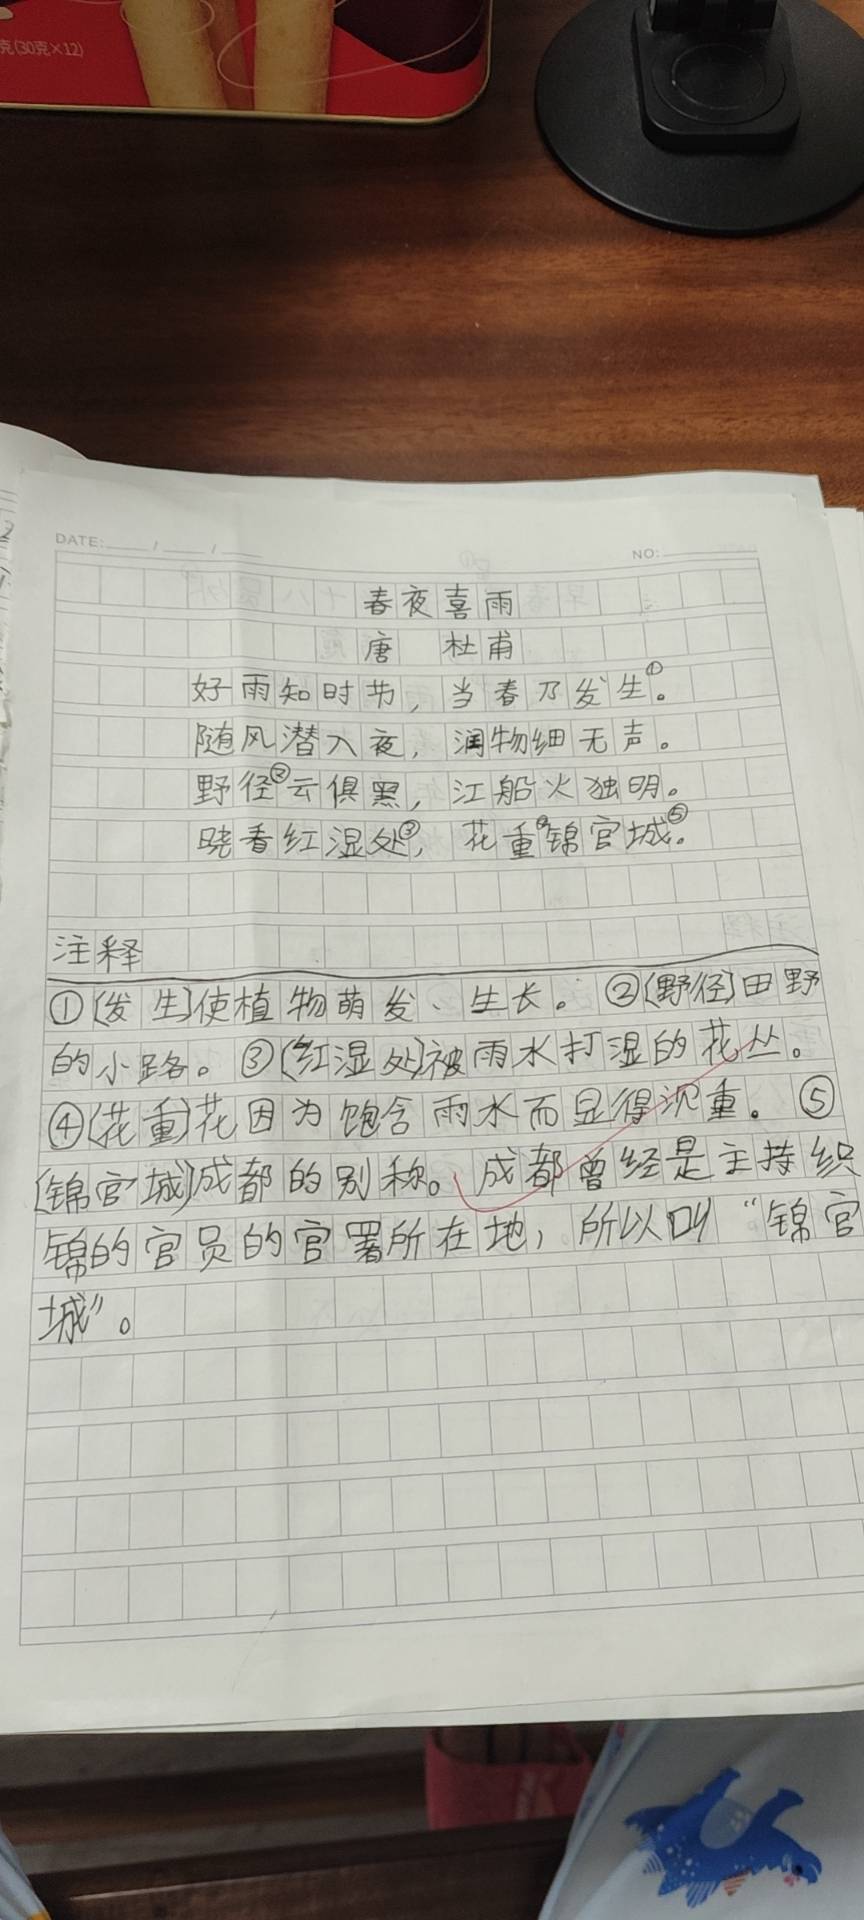 克(30克×12)
DATE: / /
NO:
春夜喜雨
唐 杜甫
好雨知时节，当春乃发生①。
随风潜入夜，润物细无声。
野径②云俱黑，江船火独明。
晓看红湿处③，花重④锦官城⑤。
注释
①[发生]使植物萌发、生长。②[野径]田野
的小路。③[红湿处]被雨水打湿的花丛。
④[花重]花因为饱含雨水而显得沉重。⑤
[锦官城]成都的别称。成都曾经是主持织
锦的官员的官署所在地，所以叫“锦官
城”。